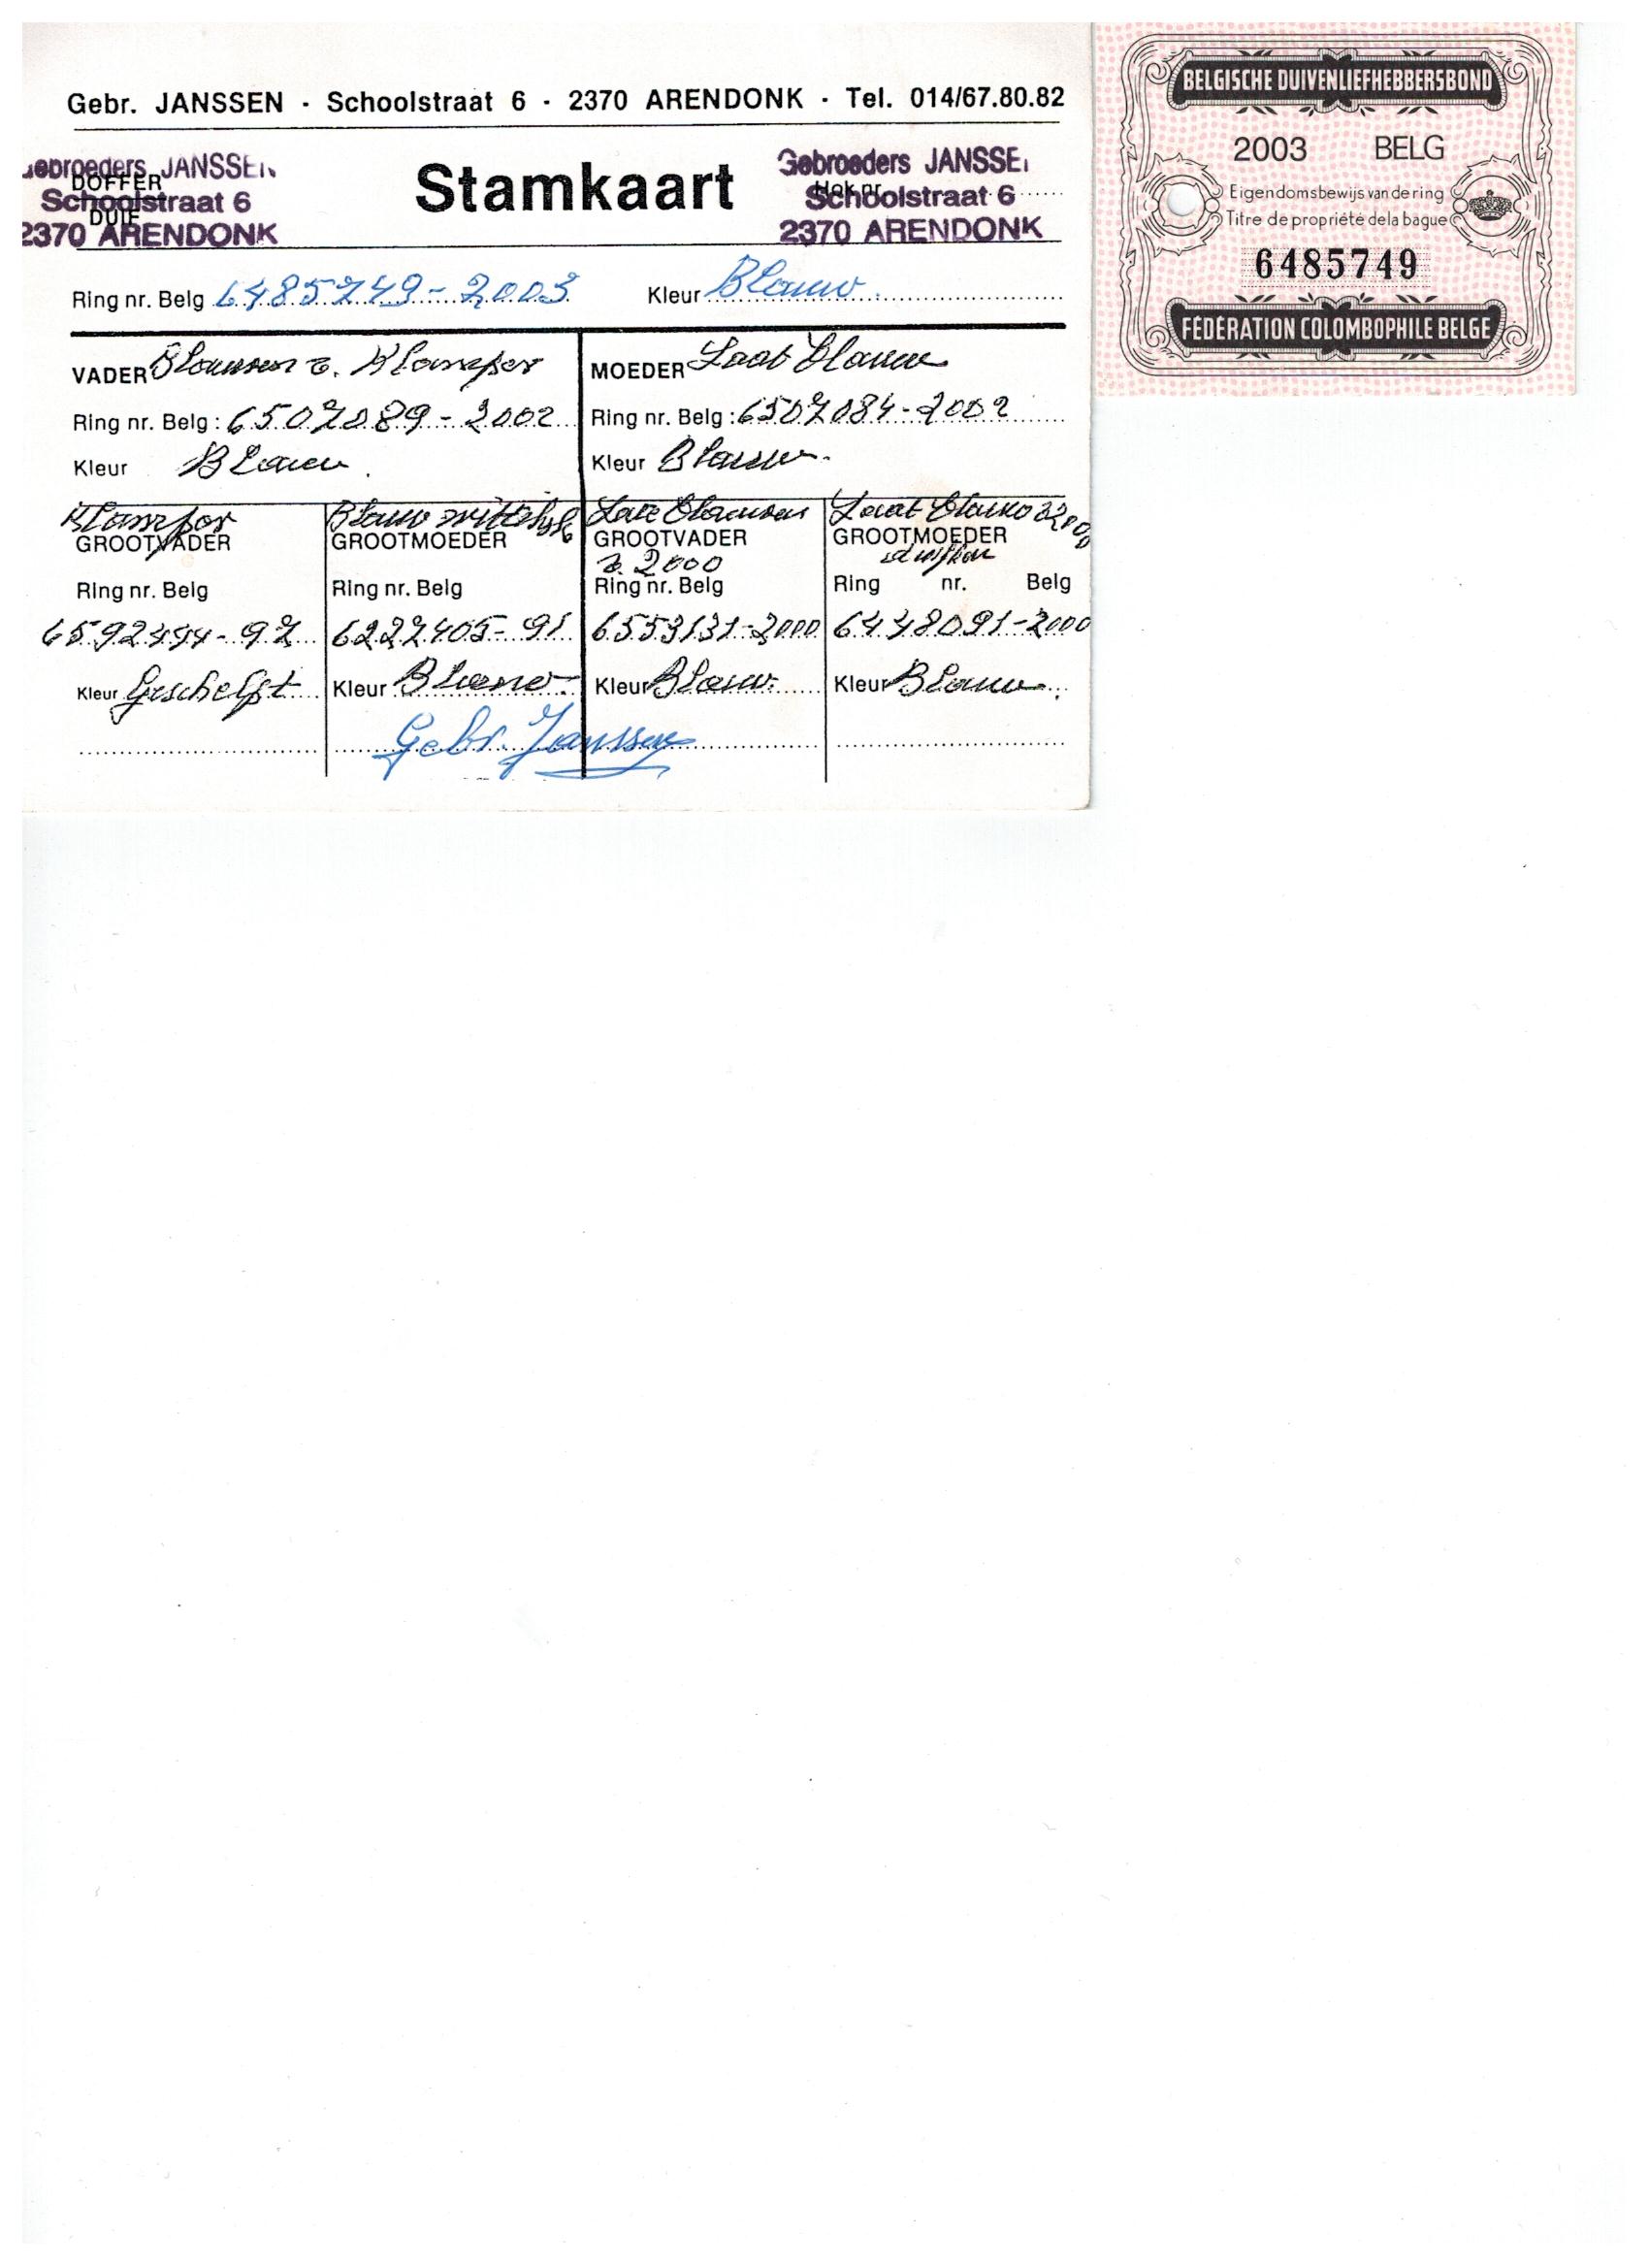 Gebr. JANSSEN · Schoolstraat 6 · 2370 ARENDONK · Tel. 014/67.80.82
Gebroeders JANSSEN
DOFFER
Schoolstraat 6
DUIF
2370 ARENDONK
Stamkaart
Gebroeders JANSSE
Hok nr.
Schoolstraat 6
2370 ARENDONK
Ring nr. Belg 6485749-2003 Kleur Blauw
VADER Blauwen v. Klamper
Ring nr. Belg : 6507089-2002
Kleur Blauw
MOEDER Laat blauw
Ring nr. Belg : 6507084-2002
Kleur Blauw
Klamper
GROOTVADER
Ring nr. Belg
6592494-97
Kleur Geschelpt
Blauw
GROOTMOEDER
Ring nr. Belg
6227405-91
Kleur Blauw
Late Blauwen
GROOTVADER
v. 2000
Ring nr. Belg
6553131-2000
Kleur Blauw
Laat blauw
GROOTMOEDER
duifke
Ring nr. Belg
6448091-2000
Kleur Blauw
Gebr. Janssen
BELGISCHE DUIVENLIEFHEBBERSBOND
2003 BELG
Eigendomsbewijs van de ring
Titre de propriété de la bague
6485749
FÉDÉRATION COLOMBOPHILE BELGE